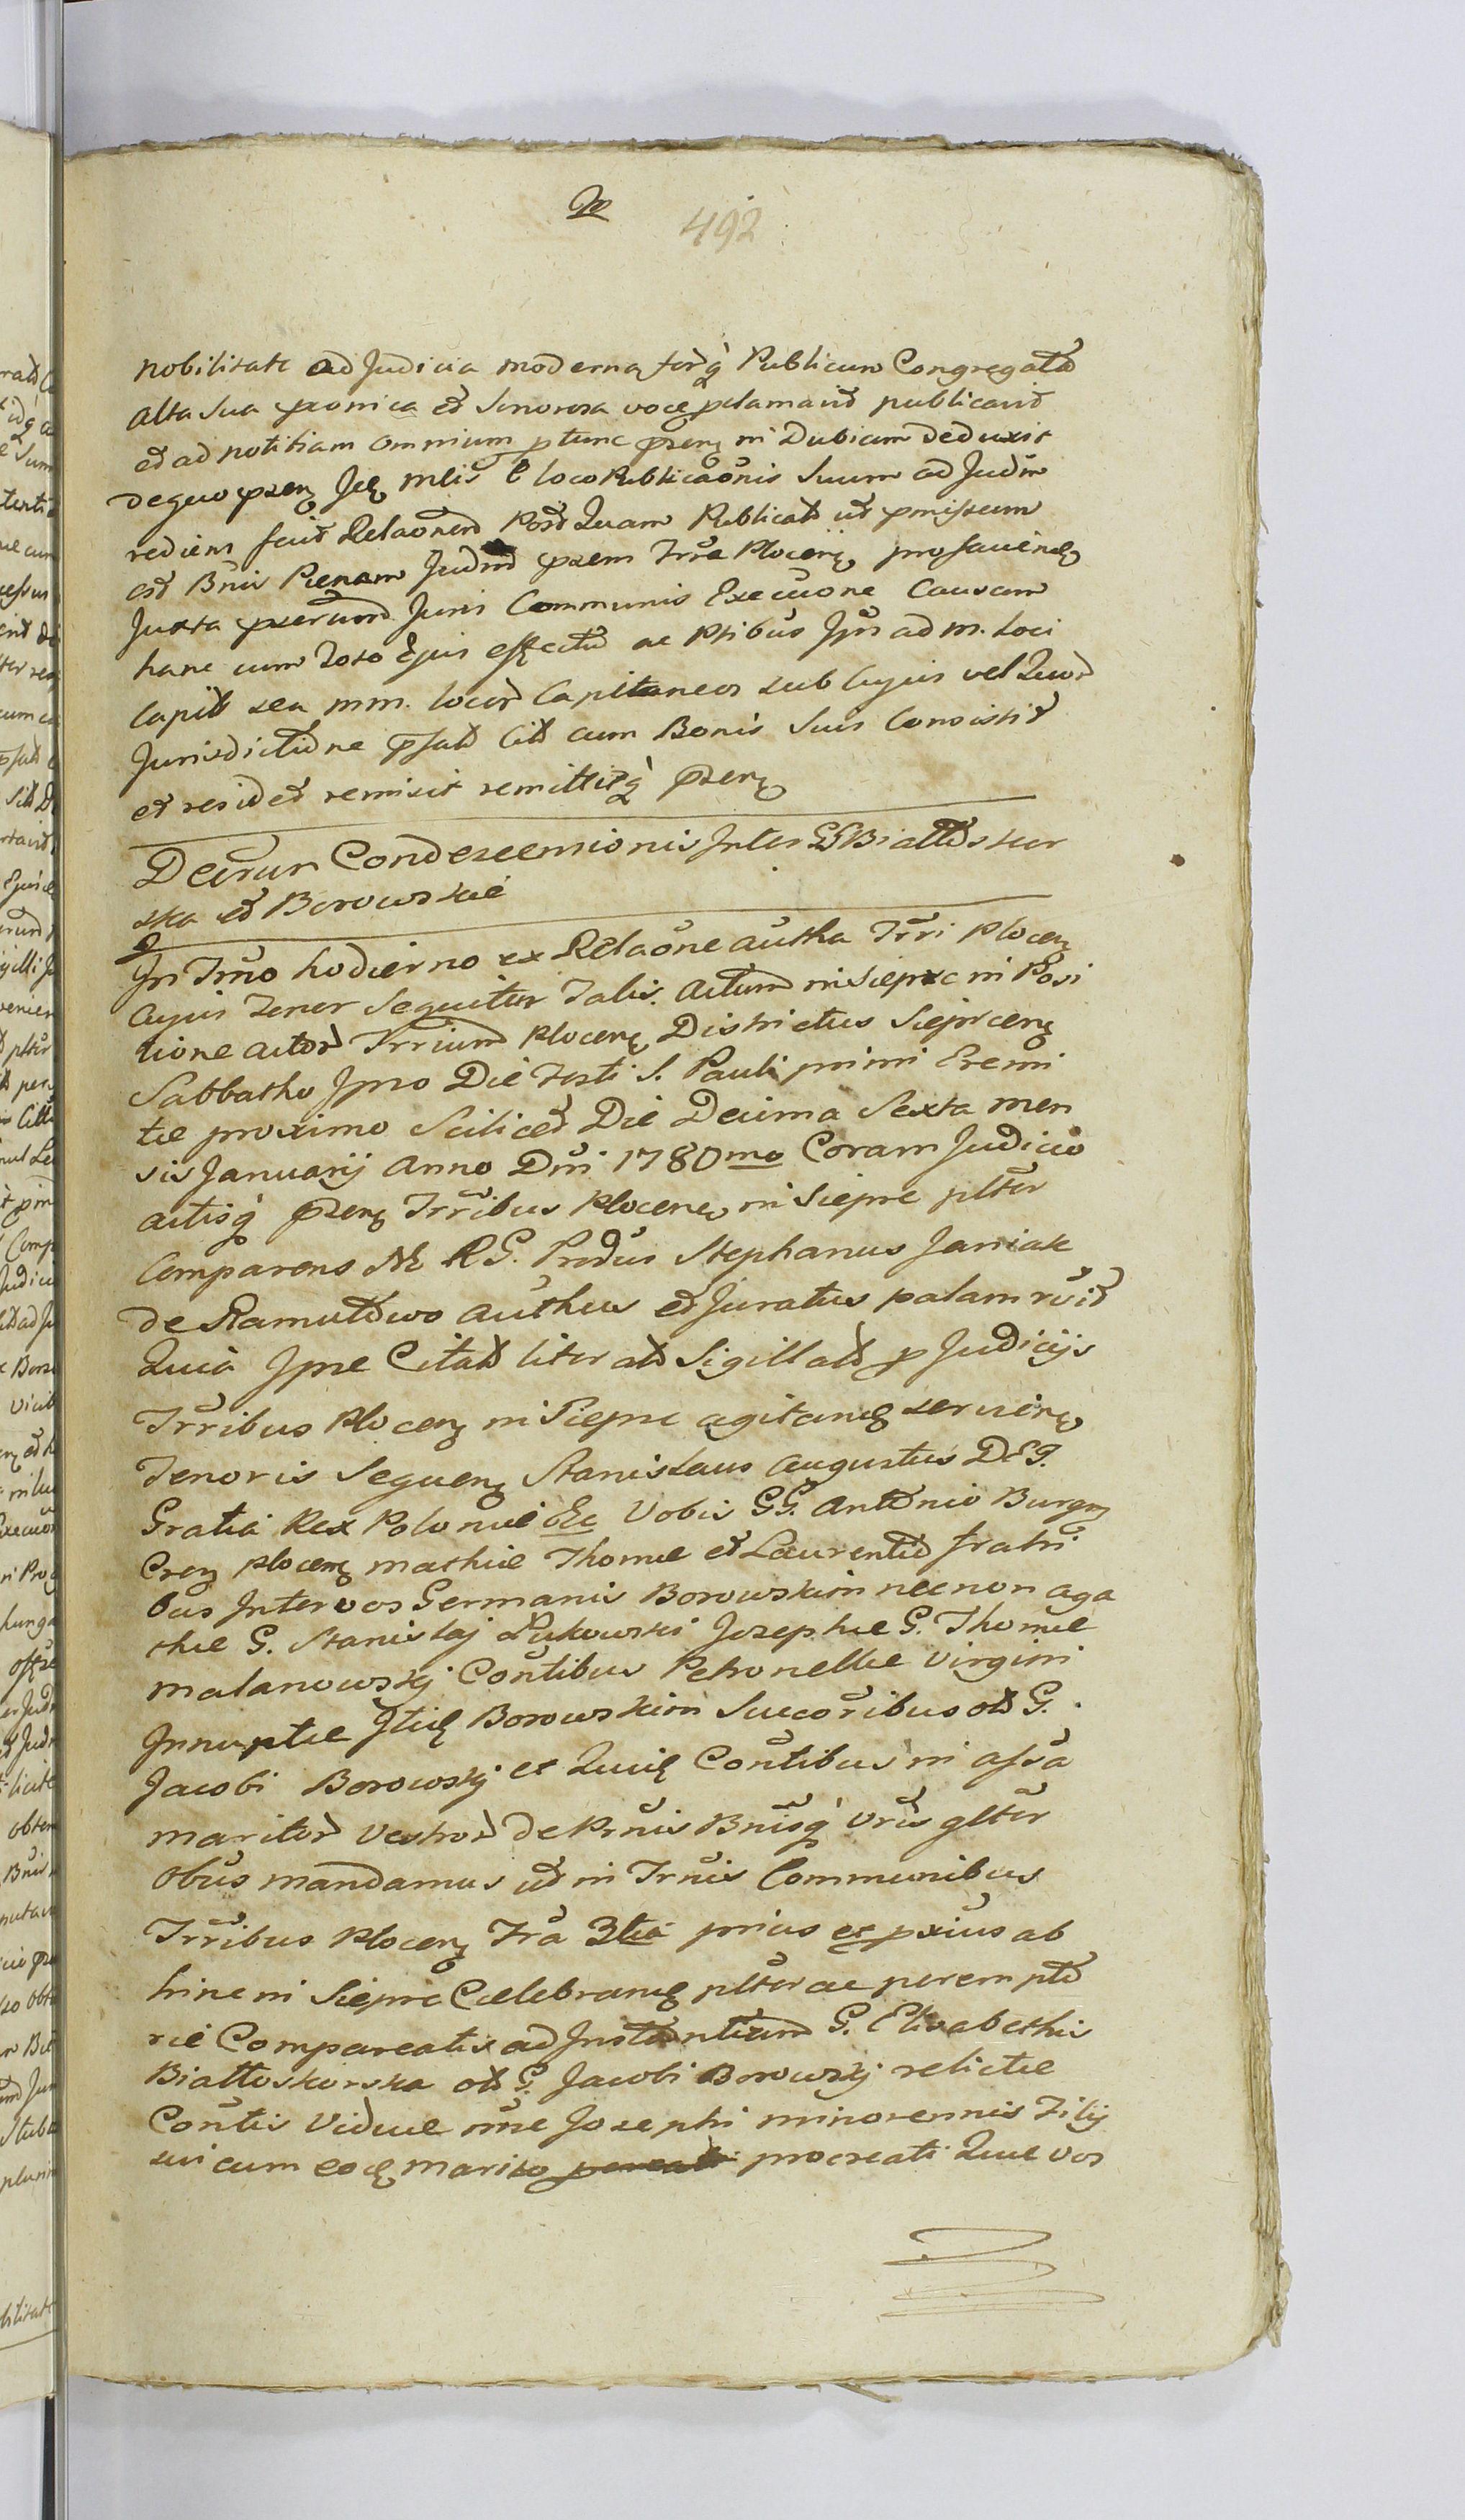 492
nobilitate ad Judicia moderna forq̀ Publicum Congregata
alta Sua pronica et Sonorosa voce pclamavit publicavit
et ad notitiam omnium ptunc pzen in Dubiam deduxit
de quo pzen Jeg mlis e loco Publicaonis Suum ad Judm
rediens fecit Relaonem Post Quam Publicat ut pmissum
est Bnis Pienam Judm pzem Trre Plocen pro faciend
Juxta pzerum Juris Communis Execuone Causam
hanc cum Toto Ejus effectu ac Ptibus Jpn ad m. Loci
Capit seu mm. locor Capitaneos sub Cujus vel Quor
Jurisdictione psat Cit cum Bonis Suis Consistit
et residet remisit remittitq̀ pzen
Decrum Condescensionis Inter GG Białłoskur
ska et Borowskie
In Trmo hodierno ex Relaone autha Trri Plocen
Cujus Tenor Sequitur Talis. Actum in Sieprc in Posi
tione actor Trrium Plocen Districtus Sieprcen
Sabbatho Ipso Die Festi S. Pauli primi Eremi
tae proximo Scilicet Die Decima Sexta men
sis Januarij Anno Dni 1780mo Coram Judicio
actisq̀ pzen Trribus Plocen in Siepre pltter
Comparens M. RG. Produs Stephanus Janiak
de Ramutowo authus et Juratus palam rvit
Quia Ipse Citat literat Sigillat p Judicijs
Trribus Plocen in Siepre agitand servien
Tenoris Sequen Stanislaus Augustus DEG.
Gratia Rex Poloniae Etc Vobis GG. Antonio Burgr
Cren Plocen Mathiae Thomae et Laurentio fratri
bus Inter vos Germanis Borowskim nec non aga
thae G. Stanislaj Łukowski Josephae G. Thomae
Malanowskj Contibus Petronellae Virgini
Innuptae Borowskim Succoribus ot G.
Jacobi Borowskj et Contibus in assa
maritor Vestror de Prnis Bnisq̀ Vris gltter
Obus mandamus ut in Trnis Communibus
Trribus Plocen Fra 3tia prius et pxius ab
hinc in Siepre Celebrand pltter ac perempto
rie Compareatis ad Instantiam G. Elisabethis
Białłoskorska ot G. Jacobi Borowskj relictae
Contis Viduae Josephi minorennis Filij
sui cum eod marito procreati Quae vos